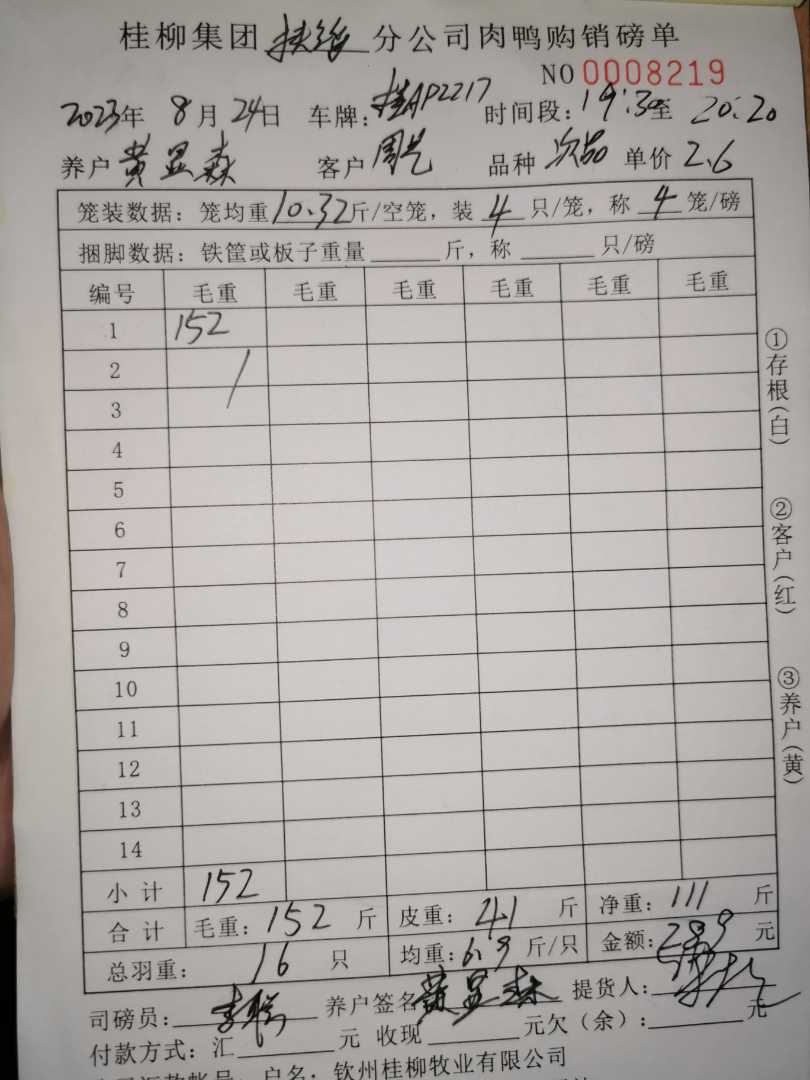 桂柳集团扶绥分公司肉鸭购销磅单
NO 0008219
2023年 8月24日 车牌:桂AP2217 时间段:19:30至 20:20
养户 黄显森 客户 周 品种 次品 单价 2.6
笼装数据:笼均重10.32斤/空笼,装 4 只/笼,称 4 笼/磅
捆脚数据:铁筐或板子重量______斤,称______只/磅
编号 毛重 毛重 毛重 毛重 毛重 毛重
1 152
2
3
4
5
6
7
8
9
10
11
12
13
14
小计 152
合计 毛重:152斤 皮重:41斤 净重:111斤
总羽重: 16 只 均重:6.9斤/只 金额:289元
司磅员: 养户签名 黄显森 提货人:
付款方式:汇______元 收现______元欠(余):______元
户名:钦州桂柳牧业有限公司
①存根(白)
②客户(红)
③养户(黄)